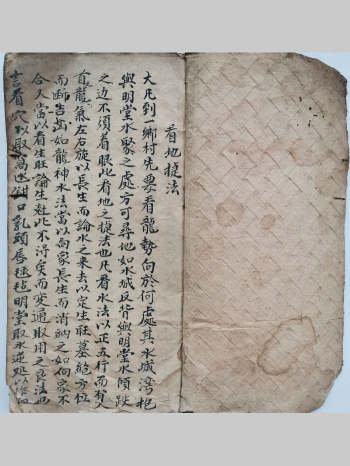 看地捷法
大凡到一鄉村先要看龍勢向於何處其水城灣抱
與明堂水聚之處方可尋地如水城反背與明堂水傾跌
之边不須着眼此看地之捷法也凡看水法以正五行而
龍氣左右旋以長生而論水之來去以定生旺墓絕方位
而断吉凶如龍神水法當以向家長生而消納之如向家不
合又當以看生旺論生尅此不得矣而变通取用之良法也
言看穴以取窩 口乳頭唇毡明堂取水